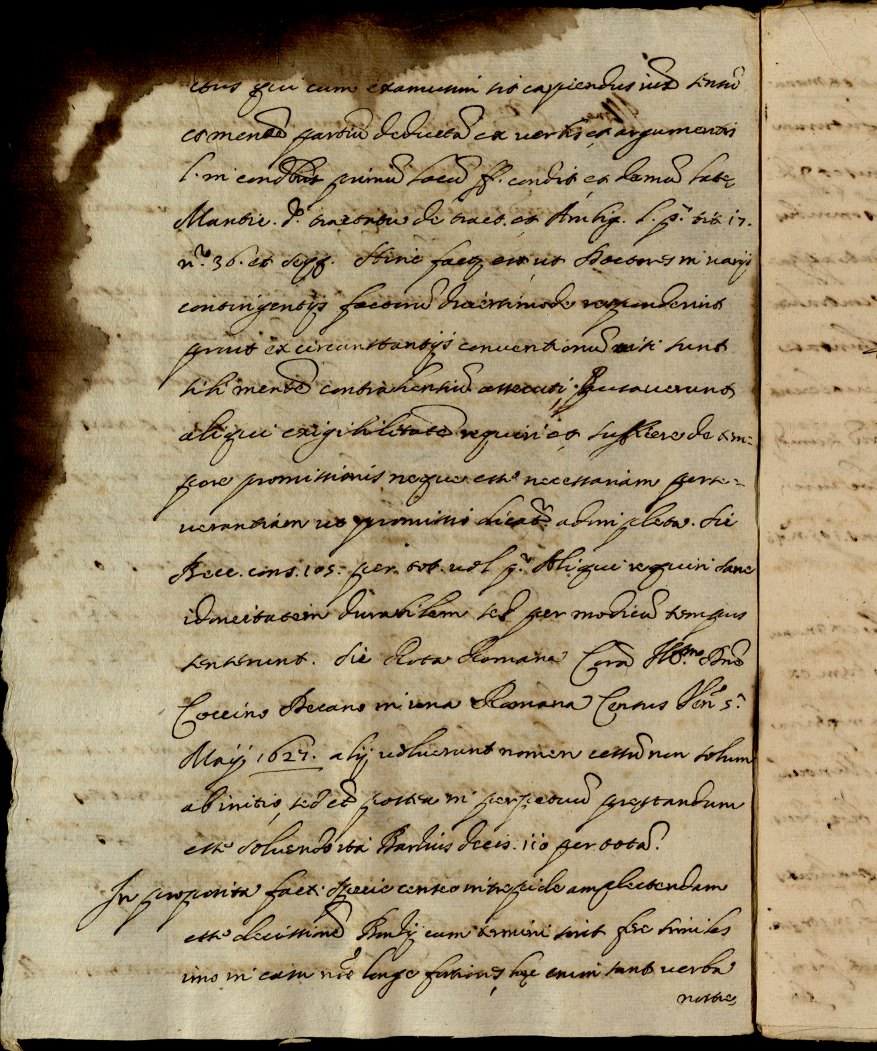 ctus qui cum examussim sit capiendus iux̄ sensū
et mentē partiū deductā ex verbis et argumentis
l. in condit primū locū ff. condit et demū late
Mantic. dᵒ. tractatu de tacit. et Ambig. l. pᵒ. tit. 17.
nᵒ. 36. et seqq. Hinc factū est ut Doctores in varijs
contingentijs factorū diversimode responderint
prout ex circunstantijs conventionū visi sunt
sibi mentē contrahentiū assecuti. Putaverunt
aliqui exigibilitatē requiri et sufficere de tem=
pore promissionis neque esse necessariam perse=
verantiam ut promissio dicat̄ adimpleta. Sic
Bece. cons. 105. per tot. vol. pᵒ. Aliqui requiri sane
idoneitatem durabilem sed per modicū tempus
senserunt. Sic Rota Romana Corā R.ᵐᵒ Dnō
Coccino Decano in una Romana Census Ven. 5.
Maij 1627. alij voluerunt nomen cessū non solum
ab initio, sed et̄ postea in perpetuū prestandum
esse solvendo ita Buratus decis. 110 per totā.
In proposita facti specie censeo intrepide amplectendam
esse decisionē Burattij cum termini sint fere similes
imo in casu nrō longe fortiores, hęc enim sunt verba
nostre